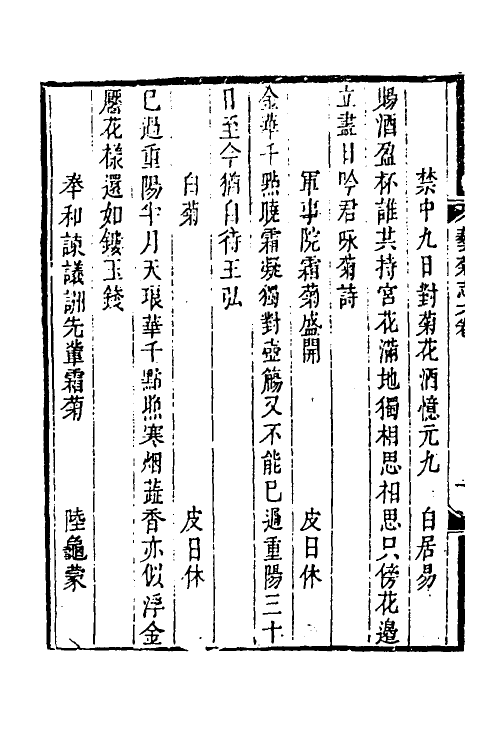 藝菊志六卷
禁中九日對菊花酒憶元九　白居易
賜酒盈杯誰共持宮花滿地獨相思相思只傍花邊
立盡日吟君咏菊詩
軍事院霜菊盛開　皮日休
金華千㸃曉霜凝獨對壺觴又不能巳過重陽三十
日至今猶自待王弘
白菊　皮日休
巳過重陽半月天琅華千點照寒烟蕋香亦似浮金
靨花樣還如鏤玉錢
奉和諫議詶先輩霜菊　陸龜蒙